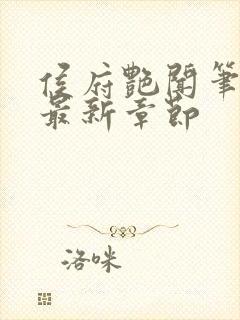 侯府艳闻笔
最新章节
洛咪